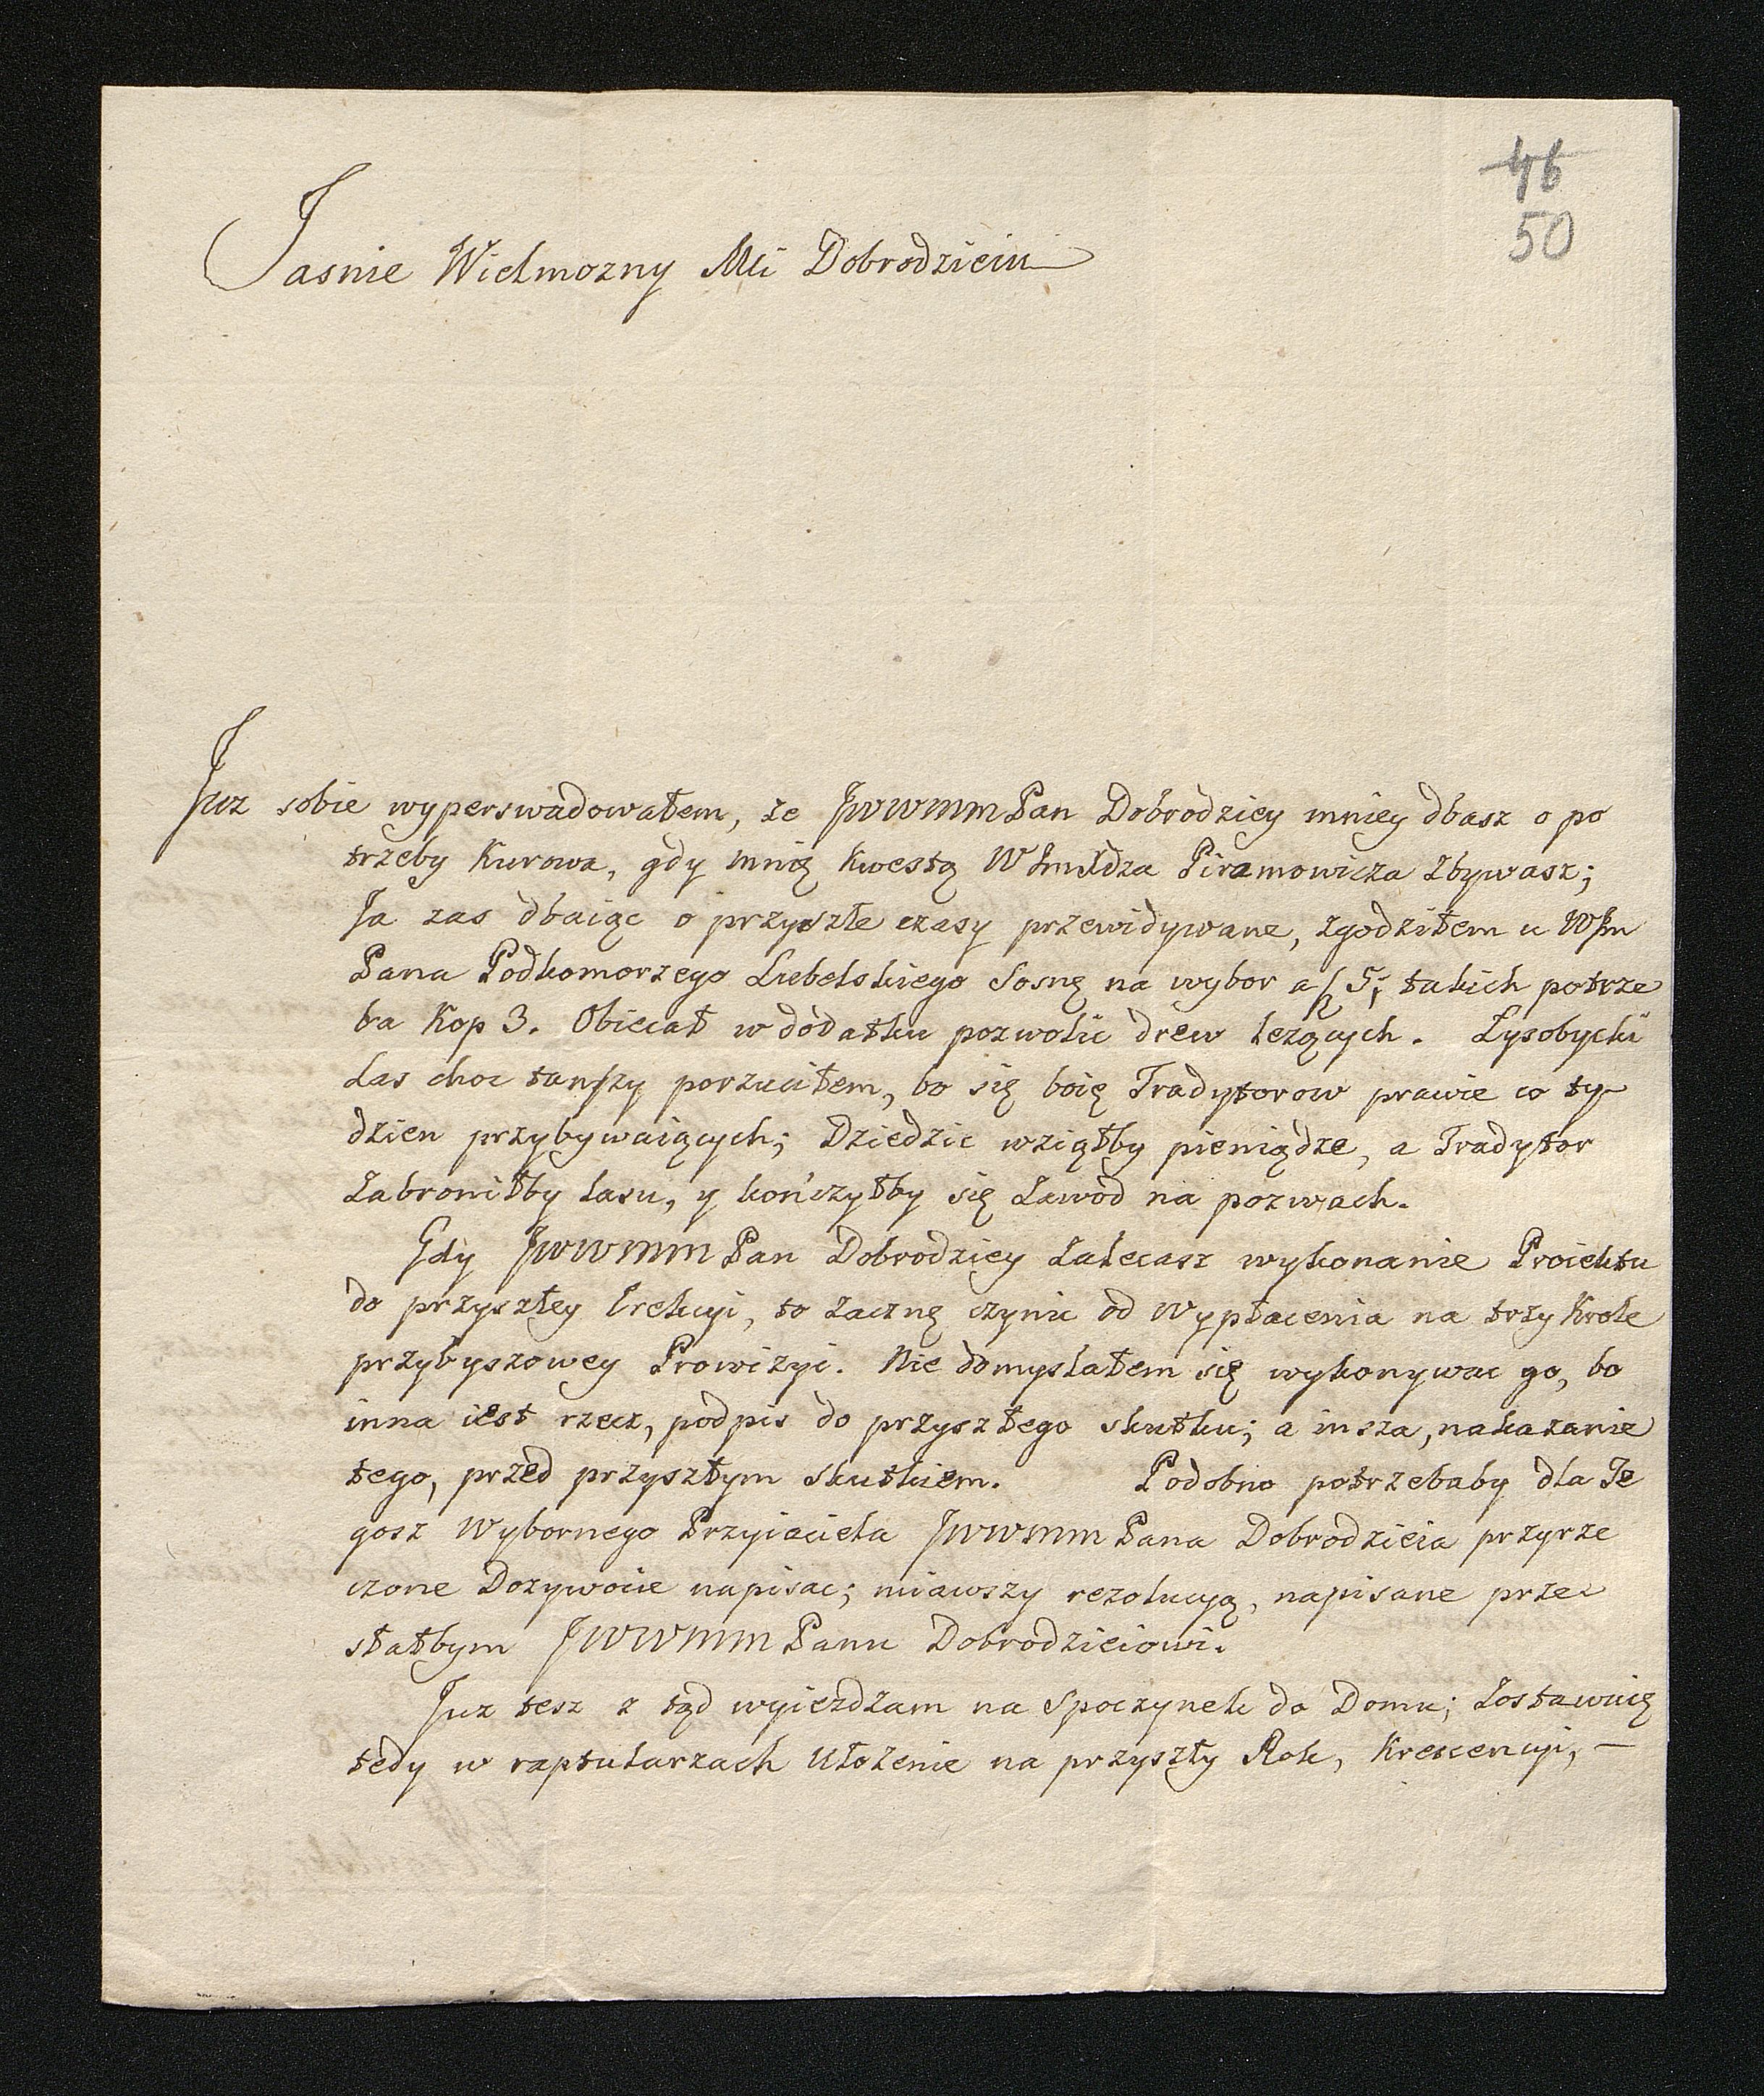 46
50
Jasnie Wielmozny Mci Dobrodzieiu
Juz sobie wyperswadowałem, ze JWWMM Pan Dobrodziey mniey dbasz o po
trzeby Kurowa, gdy mnię kwestą Piramowicza zbywasz;
Ja zas dbaiąc o przyszłe czasy przewidywane, zgodziłem u WJm
Pana Podkomorzego Lubelskiego Sosnę na wybor a 5; takich potrze
ba Kop 3. Obiecał w dodatku pozwolic drew lezących. Łysobycki
Las choc tanszy porzuciłem, bo się boię Tradytorow prawie co ty
dzien przybywaiących; Dziedzic wziąłby pieniądze, a Tradytor
zabroniłby lasu, y kończyłby się zawod na pozwach.
Gdy JWWMM Pan Dobrodziey zalecasz wykonanie Proiektu
do przyszłey Erekcyi, to zacznę czynic od wypłacenia na trzy Krole
przybyszowey Prowizyi. Nie domyslałem się wykonywac go, bo
inna iest rzecz, podpis do przyszłego skutku; a insza, nakazanie
tego, przed przyszłym skutkiem. Podobno potrzebaby dla Te
gosz wybornego Przyiaciela JWWMM Pana Dobrodzieia przyrze
czone Dozywocie napisac; miawszy rezolucyą, napisane prze
słałbym JWWMM Panu Dobrodzieiowi.
Juz tesz z tąd wyiezdzam na Spoczynek do Domu; zostawuię
tedy w raptularzach Ułozenie na przyszły Rok, Krescencyi, —